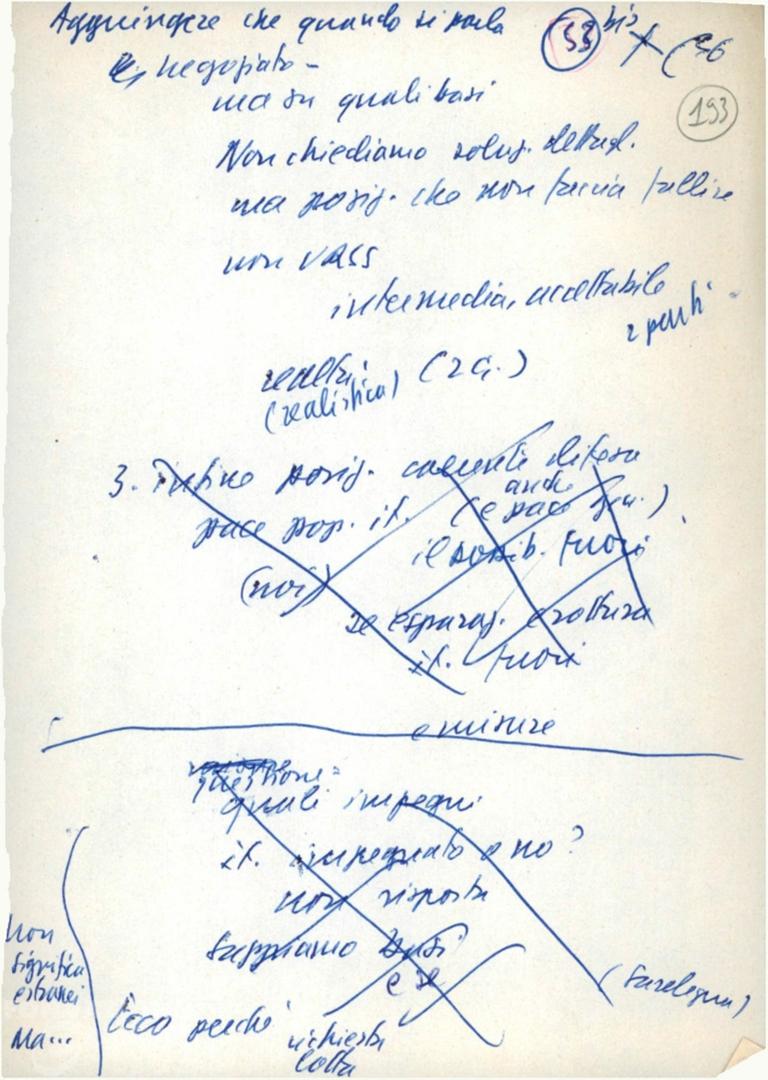 Aggiungere che quando si parla
53 bis
di negoziato -
193
ma su quali basi
Non chiediamo soluz. dettagl.
ma posiz. che non faccia fallire
non VASS
intermedia, accettabile
2 parti
realtà.
(realistica)
3. Infine posiz. coerente difesa
anche
pace pop. it. (e pace gen.)
il possib. fuori
(noi)
se esperaz. e rottura
it. fuori
e misure
questione:
quali impegni
it. impegnato o no?
non risposta
Sappiamo basi
e se
(Sardegna)
non
significa
estranei
Ma...
Ecco perché
richiesta
lotta